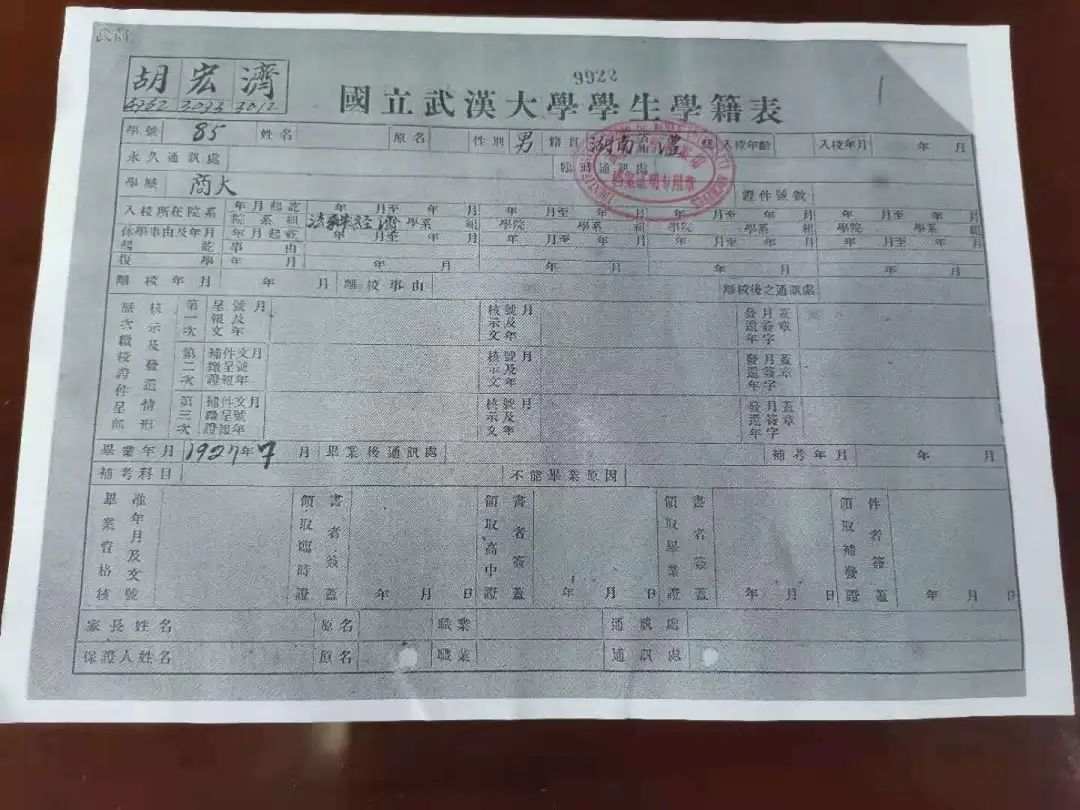 9922
胡 宏 濟
4762 3093 3012
國立武漢大學學生學籍表
1
學號 85 姓名 原名 性別 男 籍貫 湖南 澧 入校年齡 入校年月 年 月
永久通訊處 臨時通訊處
學歷 商大 證件號數
入校所在院系 年月起訖 年 月至 年 月 年 月至 年 月 年 月至 年 月 年 月至 年 月
院系組 經濟 學系 組 學院 學系 組 學院 學系 組 學院 學系 組
休學事由及年月 年月起訖 年 月至 年 月 年 月至 年 月 年 月至 年 月 年 月至 年 月
起訖事由
復學 年 月 年 月 年 月 年 月 年 月
離校年月 年 月 離校事由 離校後之通訊處
歷次職校證件呈部核示及發還情形
第一次 呈報文號及年月 核示文號及年月 發還年月簽字蓋章
第二次 補呈證件文號年月 核示文號及年月 發還年月簽字蓋章
第三次 補呈證件文號年月 核示文號及年月 發還年月簽字蓋章
畢業年月 1927年7月 畢業後通訊處 補考年月 年 月
補考科目 不能畢業原因
畢業資格核准年月及文號 領取臨時證書者簽蓋 年 月 日 領取高中證書者簽蓋 年 月 日 領取畢業證書者簽蓋 年 月 日 領取補發證件者簽蓋 年 月 日
家長姓名 原名 職業 通訊處
保證人姓名 原名 職業 通訊處